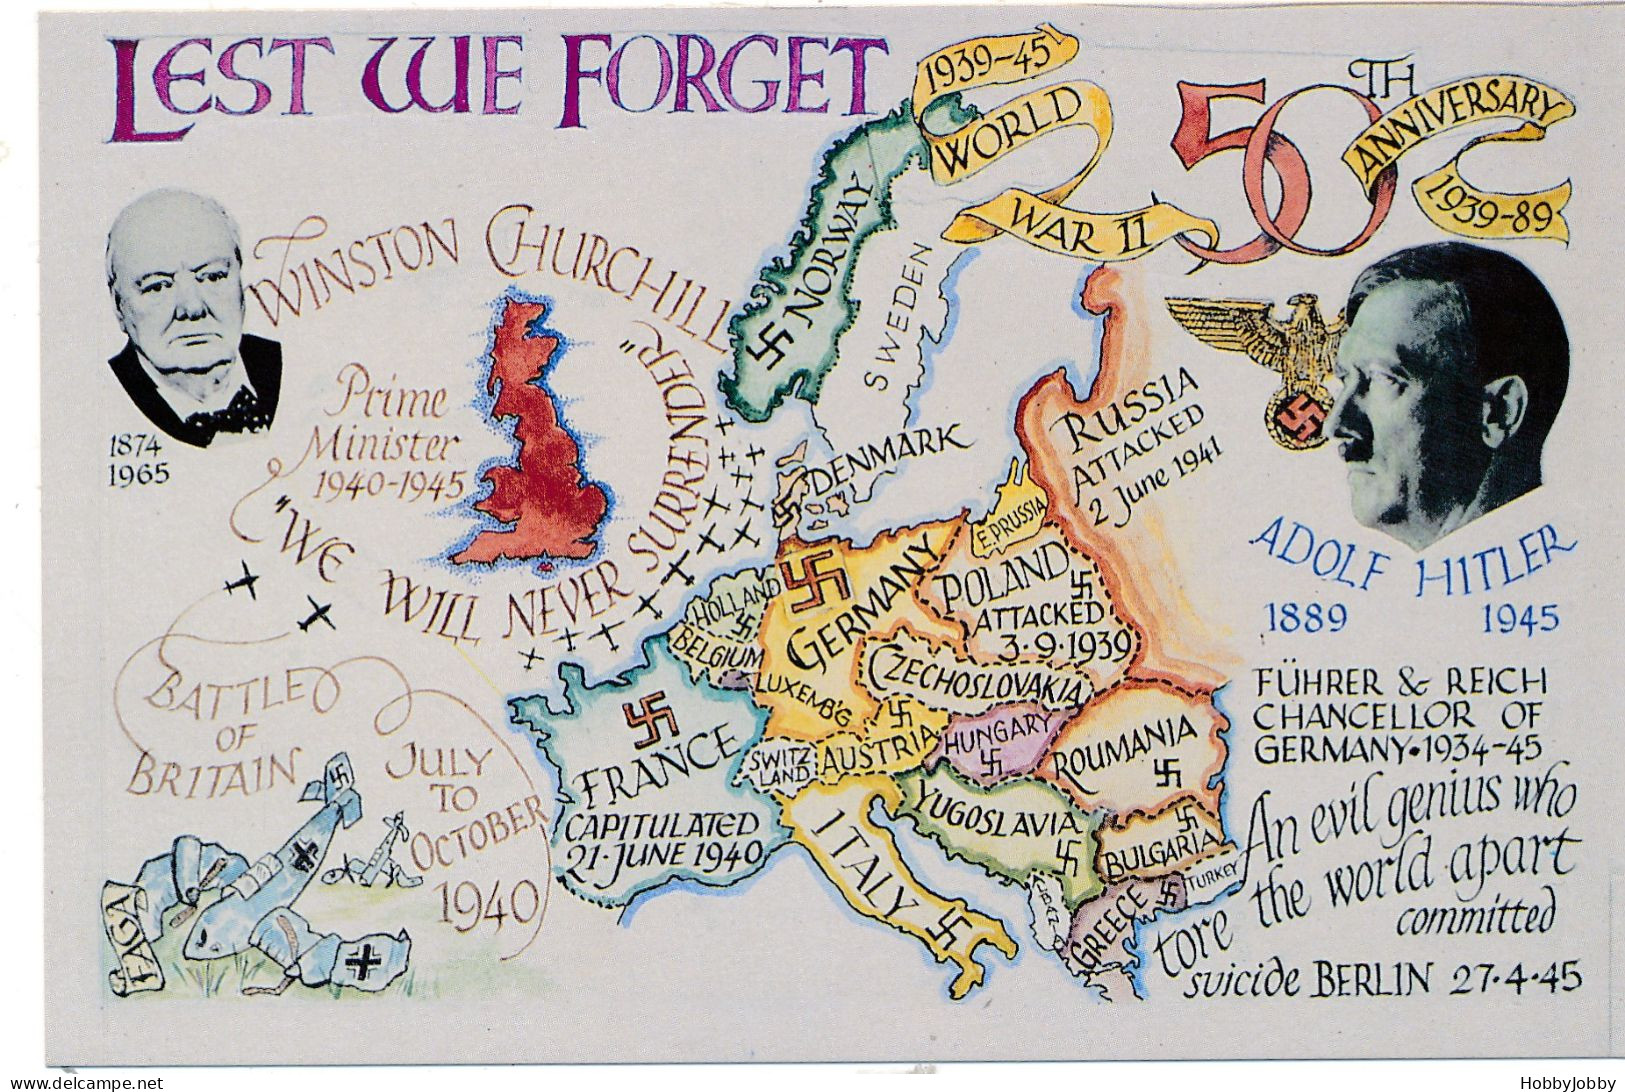 LEST WE FORGET
1939-45
WORLD
WAR II
50TH
ANNIVERSARY
1939-89
WINSTON CHURCHILL
Prime
Minister
1940-1945
1874
1965
"WE WILL NEVER SURRENDER"
BATTLE
OF
BRITAIN
JULY
TO
OCTOBER
1940
NORWAY
SWEDEN
DENMARK
RUSSIA
ATTACKED
2 June 1941
E. PRUSSIA
POLAND
ATTACKED
3·9·1939
GERMANY
HOLLAND
BELGIUM
LUXEMB'G
CZECHOSLOVAKIA
FRANCE
CAPITULATED
21·JUNE 1940
SWITZ
LAND
AUSTRIA
HUNGARY
ROUMANIA
YUGOSLAVIA
ITALY
BULGARIA
GREECE
TURKEY
ADOLF HITLER
1889 1945
FÜHRER & REICH
CHANCELLOR OF
GERMANY·1934-45
An evil genius who
tore the world apart
committed
suicide BERLIN 27·4·45
HobbyJobby